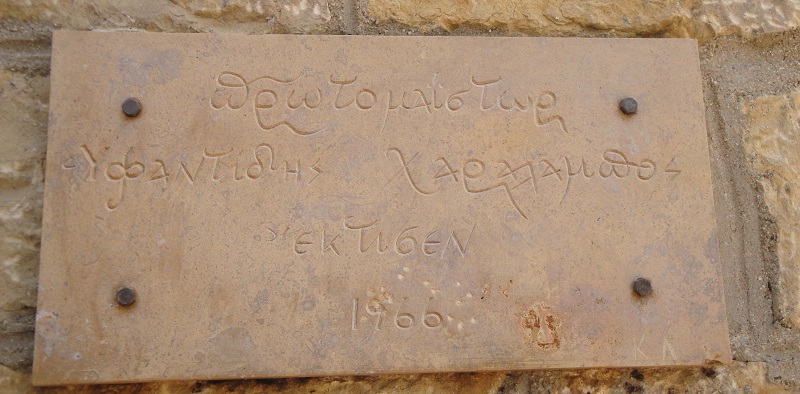 πρωτομαΐστωρ
Ὑφαντίδης Χαράλαμπος
ἔκτισεν
1966
ΚΛ